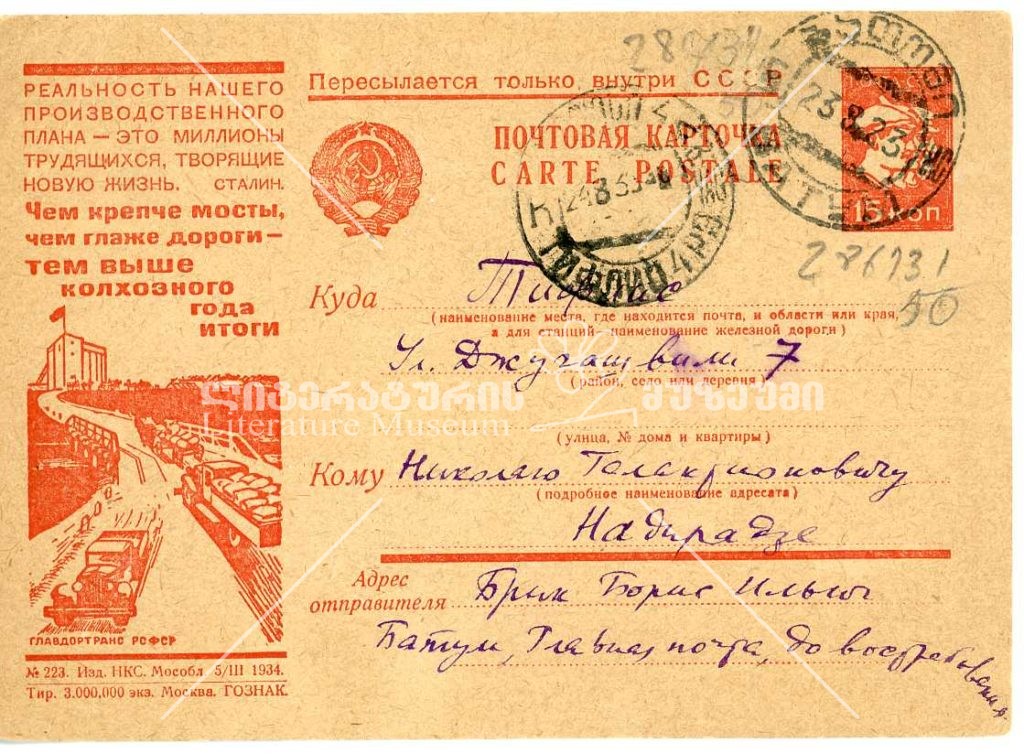 РЕАЛЬНОСТЬ НАШЕГО
ПРОИЗВОДСТВЕННОГО
ПЛАНА — ЭТО МИЛЛИОНЫ
ТРУДЯЩИХСЯ, ТВОРЯЩИЕ
НОВУЮ ЖИЗНЬ. СТАЛИН.
Чем крепче мосты,
чем глаже дороги—
тем выше
колхозного
года
итоги
ГЛАВДОРТРАНС РСФСР
№ 223. Изд. НКС. Мособл. 5/III 1934.
Тир. 3.000,000 экз. Москва. ГОЗНАК.
289/31
Пересылается только внутри СССР
ПОЧТОВАЯ КАРТОЧКА
CARTE POSTALE
15 КОП
23 8 23
24 8 35
ТИФЛИС
28673 1
50
Куда Тифлис
(наименование места, где находится почта, и области или края,
а для станций—наименование железной дороги)
Ул. Джугашвили 7
(район, село или деревня)
ლიტერატურის მუზეუმი
Literature Museum
(улица, № дома и квартиры)
Кому Николаю Галакрионовичу
(подробное наименование адресата)
Надирадзе
Адрес
отправителя Брик Борис Ильич
Батум, Главная почта, до востребования